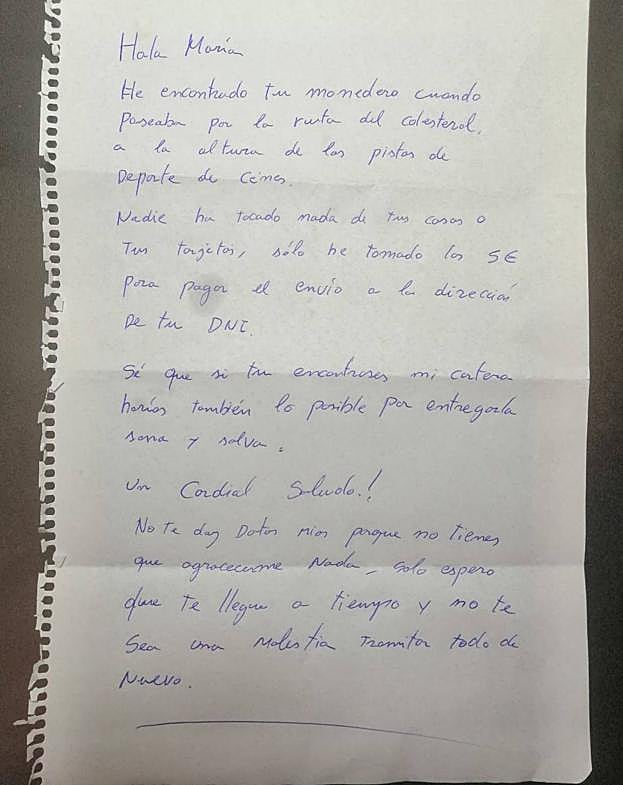 Hola María
He encontrado tu monedero cuando
Paseaba por la ruta del colesterol,
a la altura de las pistas de
Deporte de Cémes.
Nadie ha tocado nada de tus cosas o
Tus tarjetas, sólo he tomado los 5€
para pagar el envío a la dirección
De tu DNI.
Sé que si tu encontrases mi cartera
harías también lo posible por entregarla
sana y salva.
Un Cordial Saludo.!
No Te doy Datos mios porque no tienes
que agradecerme Nada, solo espero
que Te llegue a tiempo y no te
Sea una Molestia Tramitar todo de
Nuevo.